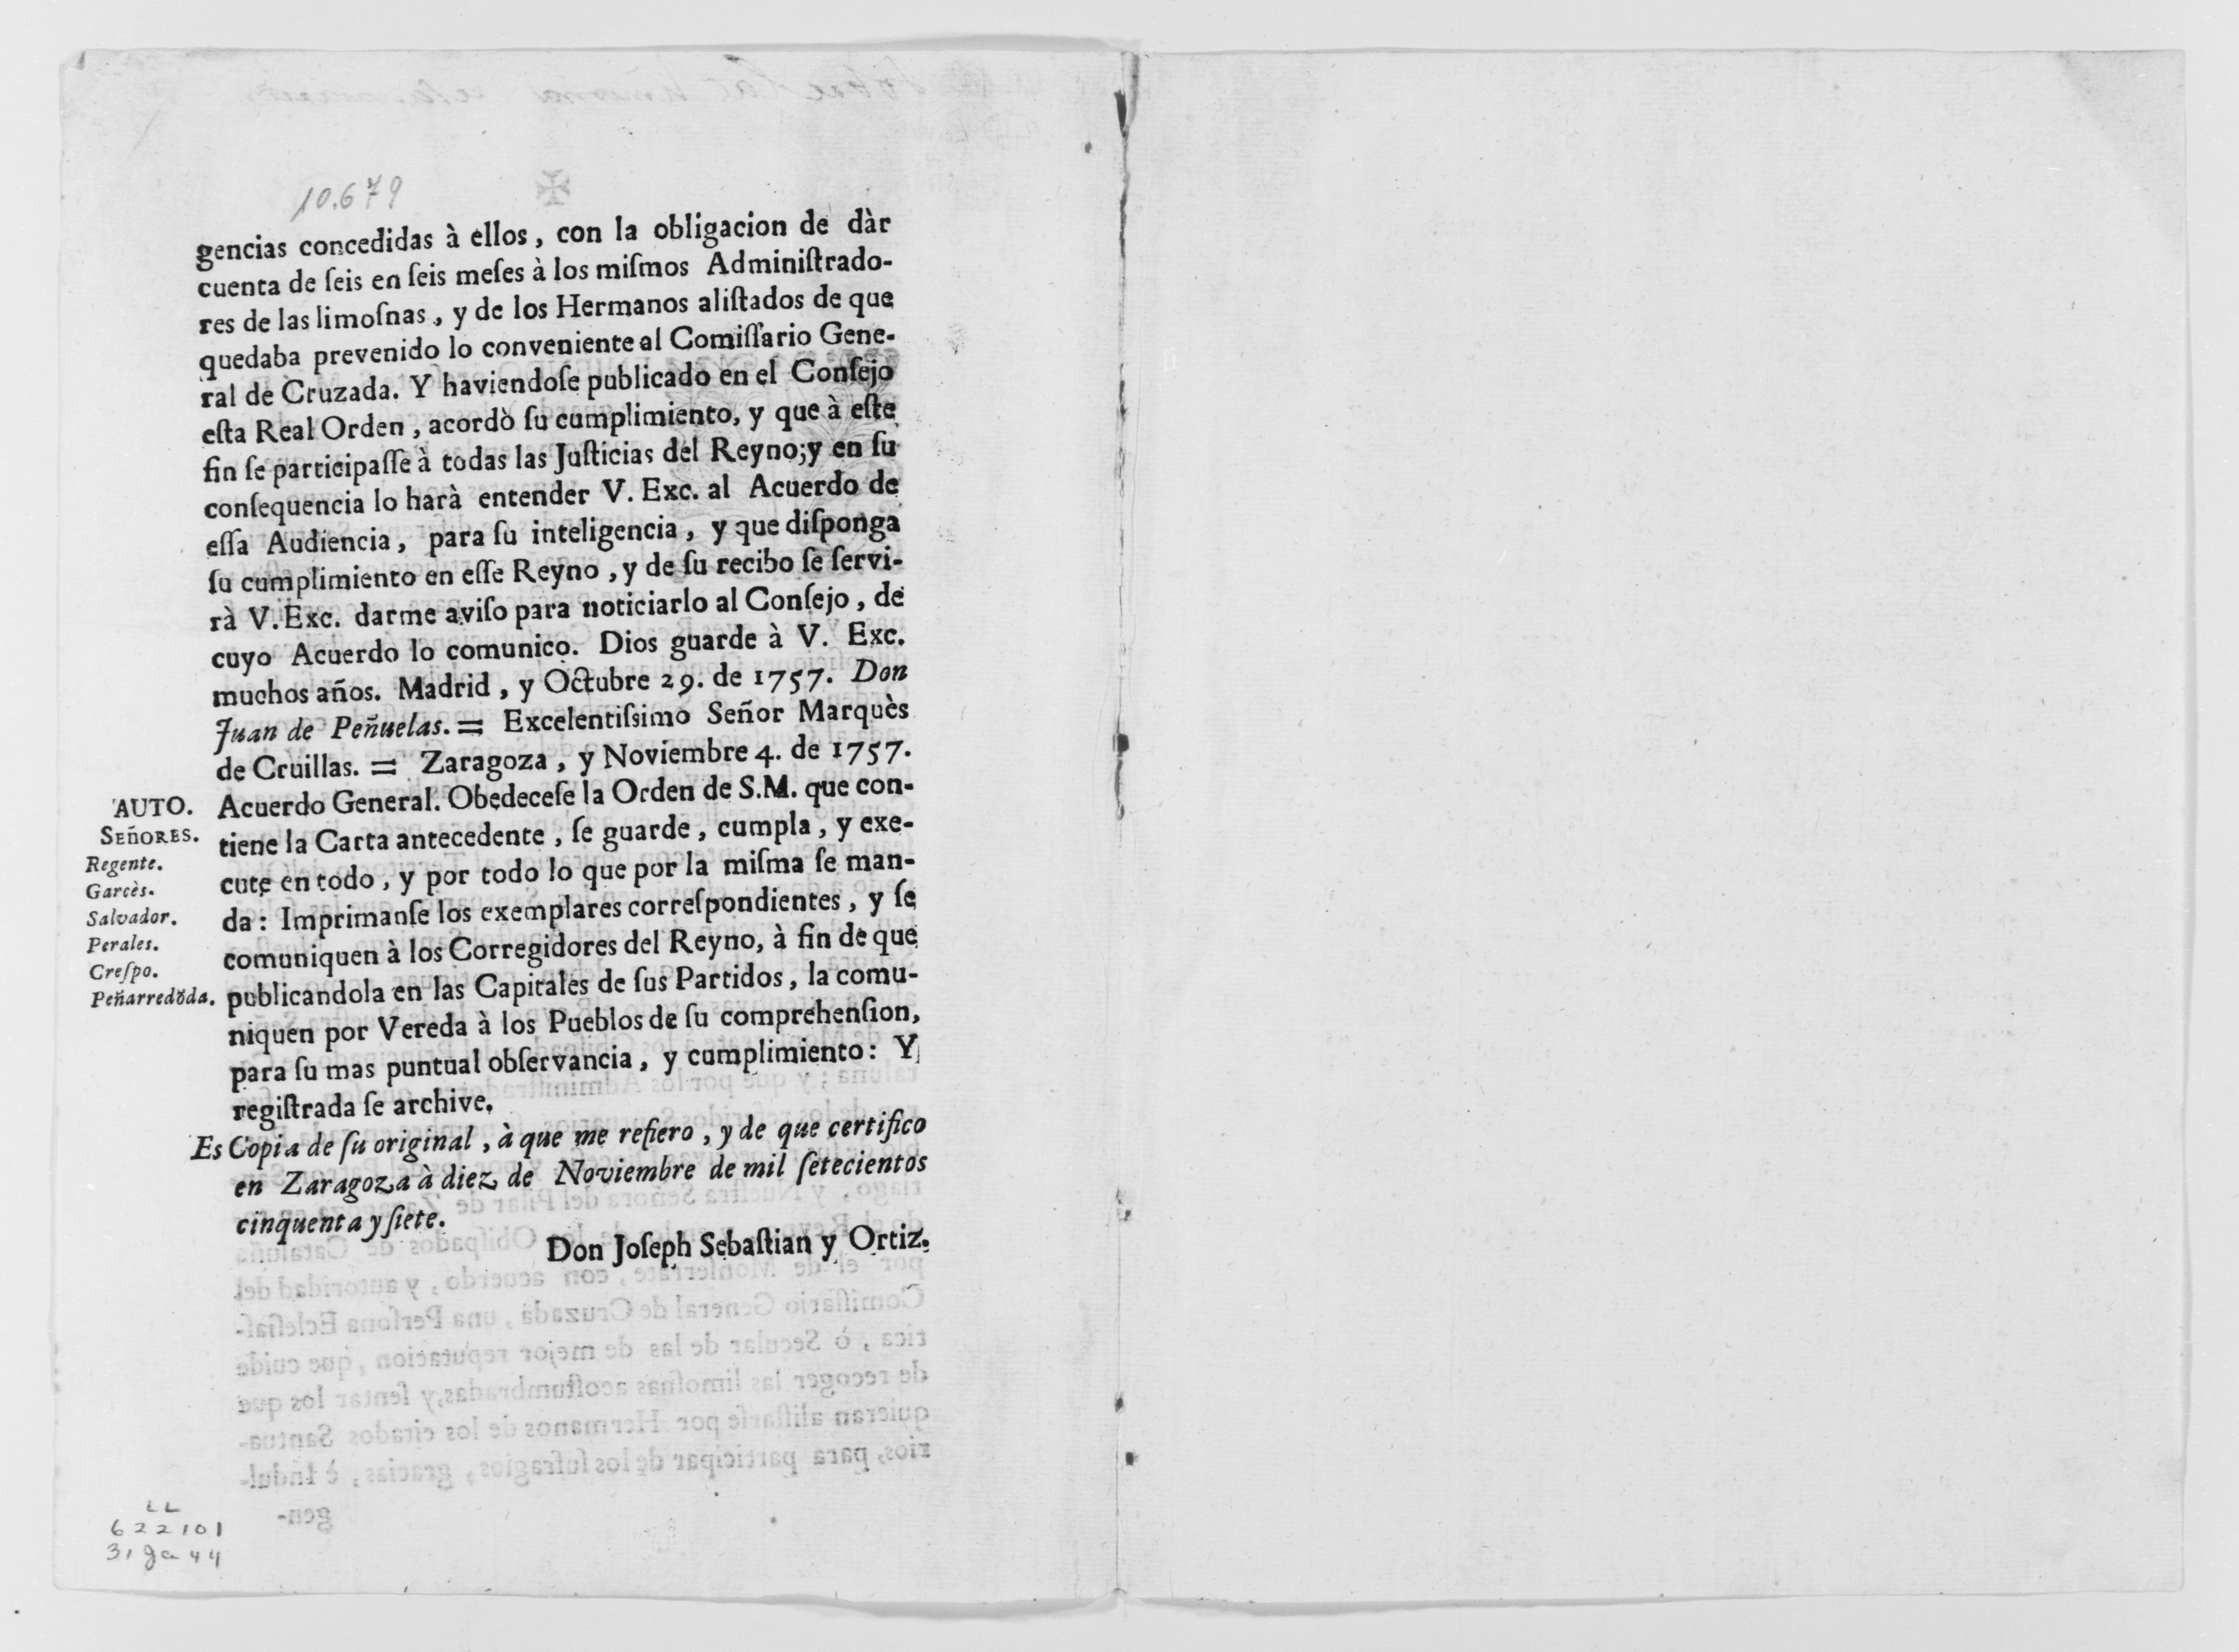 10.679
gencias concedidas à ellos, con la obligacion de dàr
cuenta de ſeis en ſeis meſes à los miſmos Adminiſtrado-
res de las limoſnas, y de los Hermanos aliſtados de que
quedaba prevenido lo conveniente al Comiſſario Gene-
ral de Cruzada. Y haviendoſe publicado en el Conſejo
eſta Real Orden, acordò ſu cumplimiento, y que à eſte
fin ſe participaſſe à todas las Juſticias del Reyno; y en ſu
conſequencia lo harà entender V. Exc. al Acuerdo de
eſſa Audiencia, para ſu inteligencia, y que diſponga
ſu cumplimiento en eſſe Reyno, y de ſu recibo ſe ſervi-
rà V. Exc. darme aviſo para noticiarlo al Conſejo, de
cuyo Acuerdo lo comunico. Dios guarde à V. Exc.
muchos años. Madrid, y Octubre 29. de 1757. Don
Juan de Peñuelas. = Excelentiſsimo Señor Marquès
de Cruillas. = Zaragoza, y Noviembre 4. de 1757.
AUTO.
SEÑORES.
Regente.
Garcès.
Salvador.
Perales.
Creſpo.
Peñarredõda.
Acuerdo General. Obedeceſe la Orden de S.M. que con-
tiene la Carta antecedente, ſe guarde, cumpla, y exe-
cute en todo, y por todo lo que por la miſma ſe man-
da: Imprimanſe los exemplares correſpondientes, y ſe
comuniquen à los Corregidores del Reyno, à fin de que
publicandola en las Capitales de ſus Partidos, la comu-
niquen por Vereda à los Pueblos de ſu comprehenſion,
para ſu mas puntual obſervancia, y cumplimiento: Y
regiſtrada ſe archive.
Es Copia de ſu original, à que me refiero, y de que certifico
en Zaragoza à diez de Noviembre de mil ſetecientos
cinquenta y ſiete.
Don Joſeph Sebaſtian y Ortiz.
LL
622101
31 ga 44